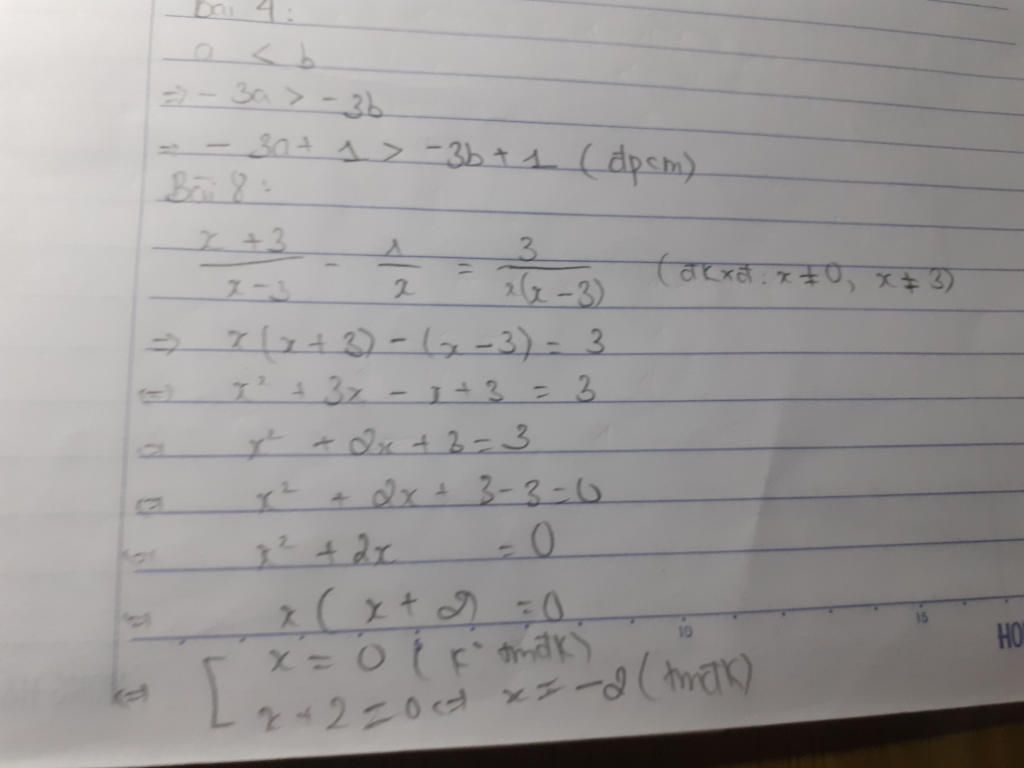 Bài 4:
a < b
=> - 3a > - 3b
=> - 3a + 1 > -3b + 1 (đpcm)
Bài 8:
\frac{x + 3}{x - 3} - \frac{1}{x} = \frac{3}{x(x - 3)} (đkxđ: x ≠ 0, x ≠ 3)
=> x(x + 3) - (x - 3) = 3
<=> x² + 3x - x + 3 = 3
<=> x² + 2x + 3 = 3
<=> x² + 2x + 3 - 3 = 0
<=> x² + 2x = 0
<=> x(x + 2) = 0
10 15
HO
<=> [ x = 0 (k° tmđk)
x + 2 = 0 <=> x = -2 (tmđk)